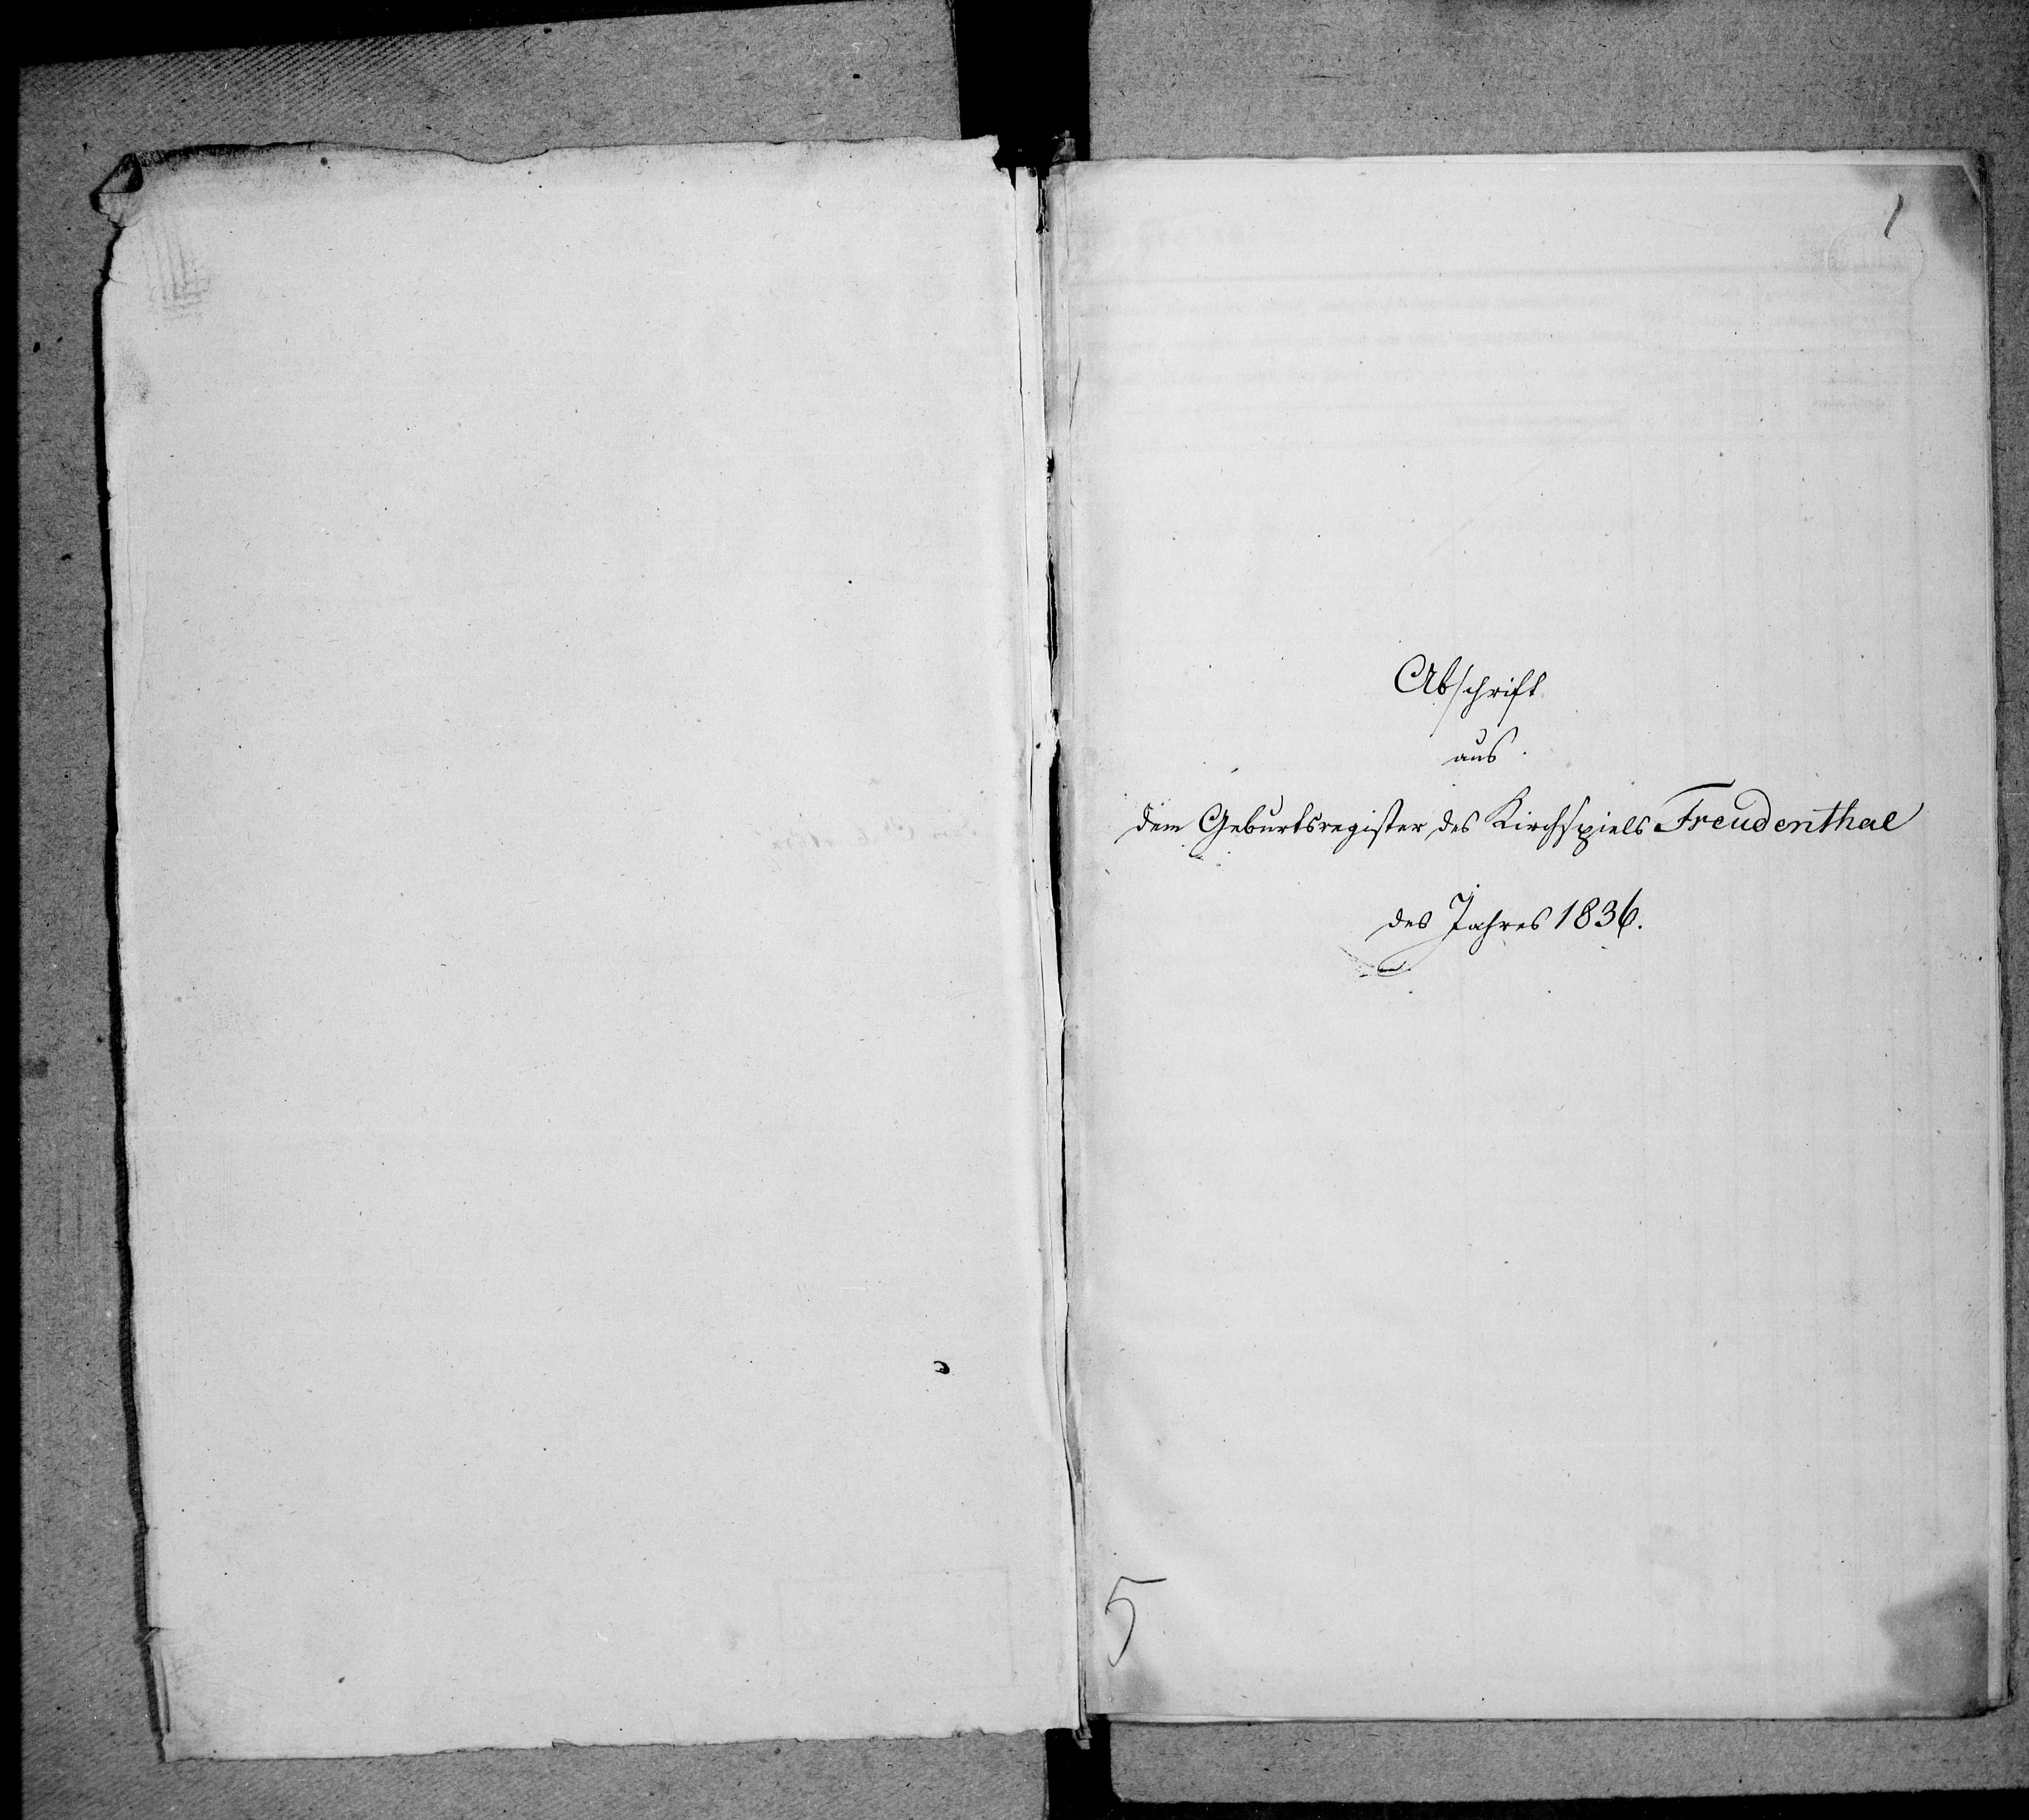 1
Abschrift
aus
dem Geburtsregister des Kirchspiels Freudenthal
des Jahres 1836.
5